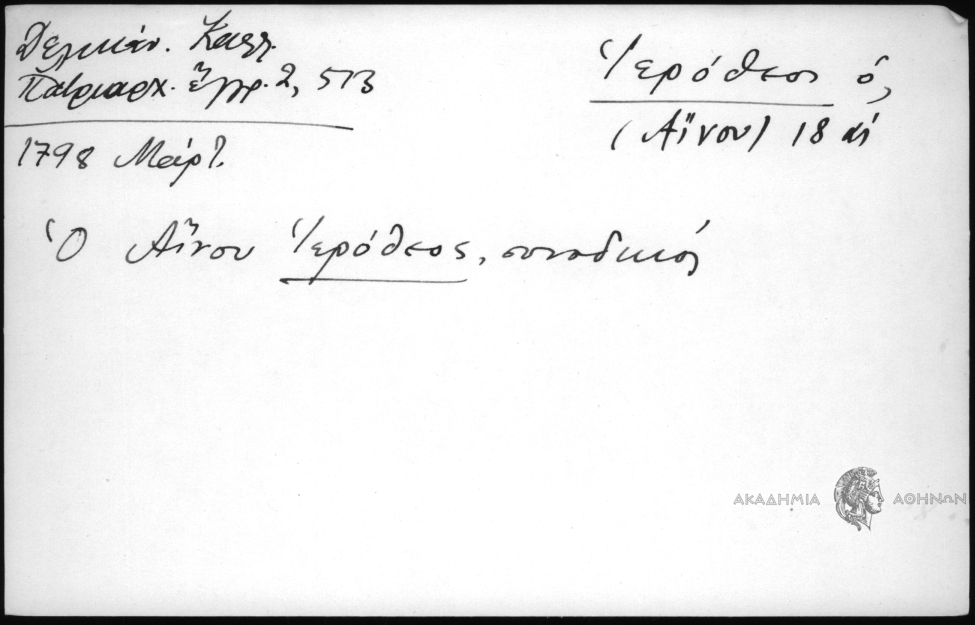 Δελικάν. Καλλ.
Πατριαρχ. ἔγγρ. 2, 573
1798 Μάρτ.
Ἱερόθεος ὁ,
(Αἴνου) 18 αἰ
Ὁ Αἴνου Ἱερόθεος, συνοδικός
ΑΚΑΔΗΜΙΑ ΑΘΗΝΩΝ